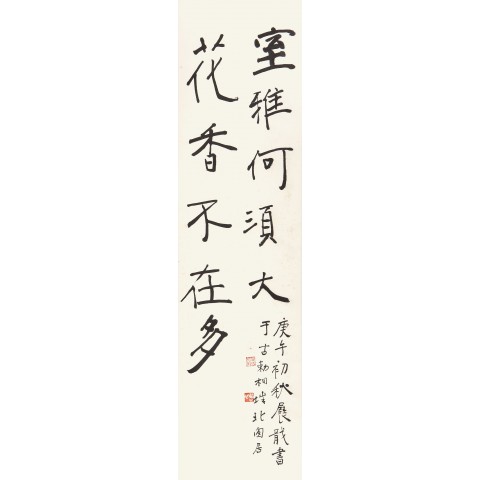 室雅何須大
花香不在多
庚午初秋展戢書
于古勅相墣北園居